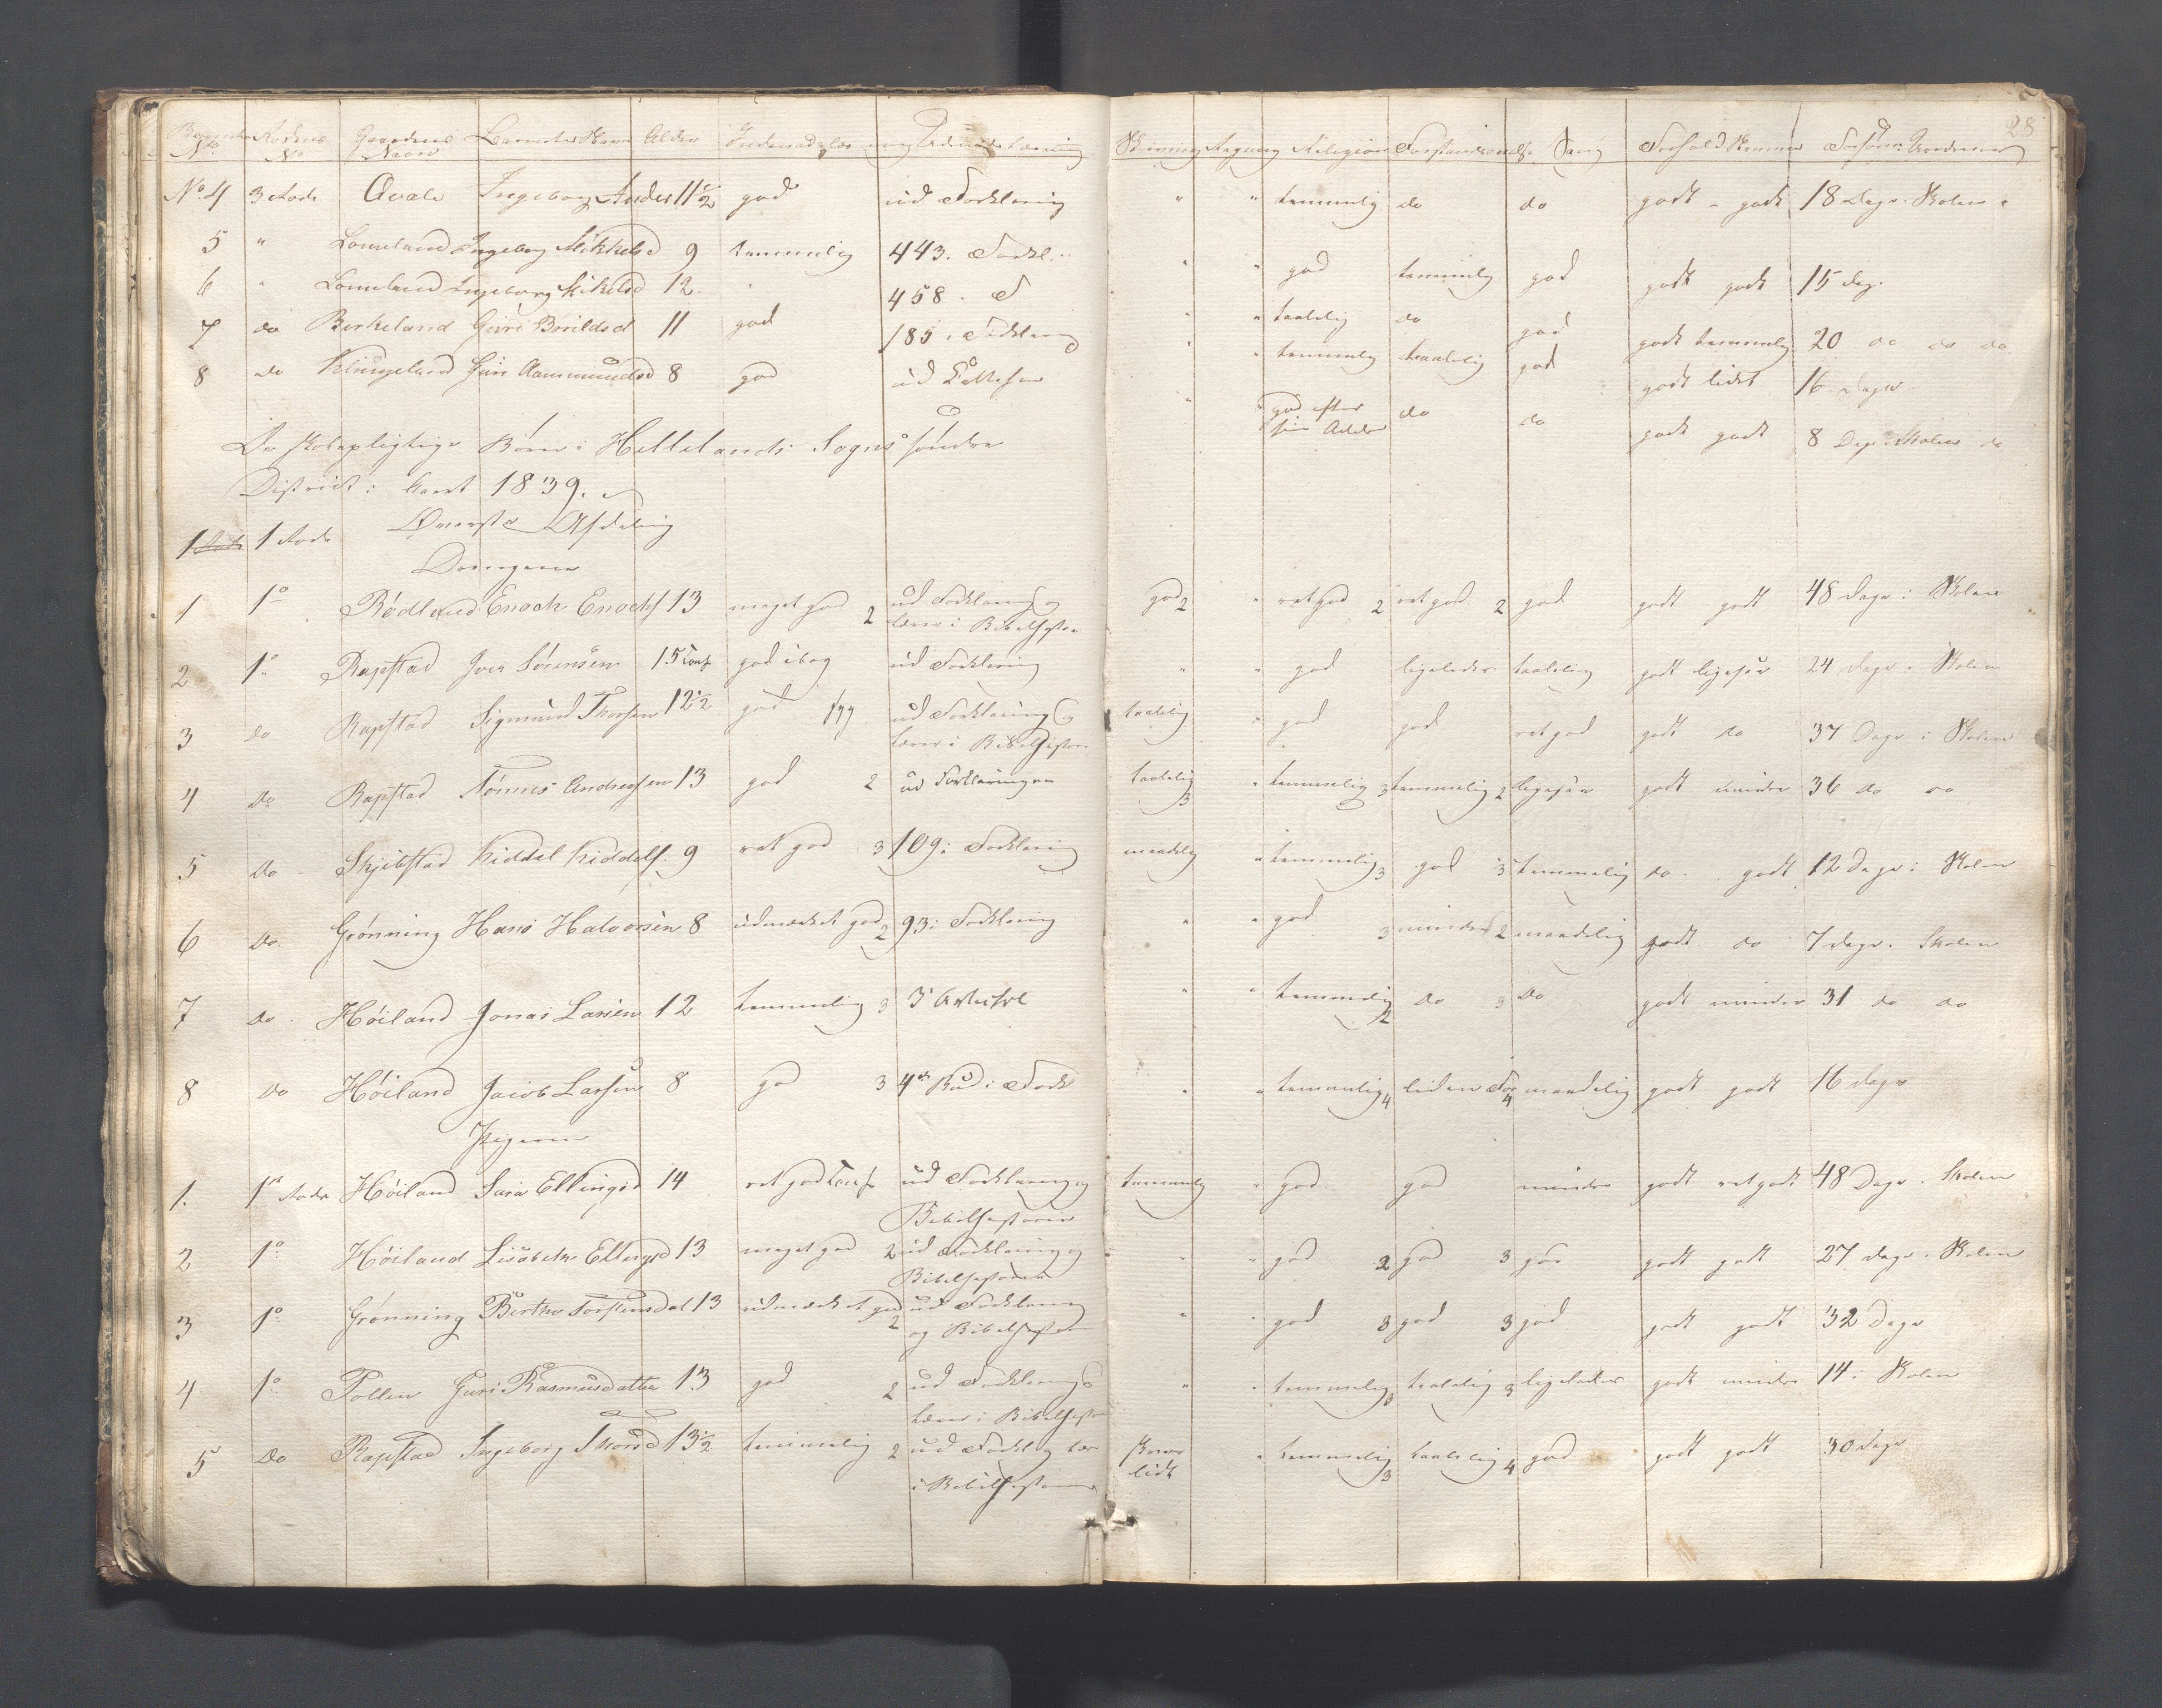 28
No Rodens No Gaardens Navn Barnets Navn Alder Indenadslæsning Udenadslæsning Skrivning Regning Religion Sang Forhold
No. 4 3 Rode Qvale Ingeborg Anders 11 1/2 god ud Forklaring " " temmelig do do godt - godt 18 Dage i Skolen
5 " Lomeland Ingeborg Mikkelsd 9 temmelig 443. Forkl. " " god temmelig god godt godt 15 Dag.
6 " Lomeland Ingeborg Mikelsd 12 " 458. F " " taalelig do god godt temmelig 20 do do do
7 do Birkeland Guri Borildsd 11 god 185 i Forklaring " " temmelig taalelig god godt lidet 16 Dage
8 do Klungeland Guri Aammundsd 8 god " " god efter sin Alder do do godt godt 8 Dage i Skolen do
De skolepligtige Børn i Hellelands Sogns søndre
District i Aaret 1839.
1 1 Rode Øverste Afdeling
Drengene
1 1o Rødland Enoch Enochs 13 meget god 2 ud Forklaring og
Læser i Bibelhistorie god 2 " ret god 2 ret god 2 god godt godt 48 Dage i Skolen
2 1o Rapstad Iver Sørensen 15 Conf god i bog ud Forklaring " " god ligeledes taalelig godt ligesaa 24 Dage i Skolen
3 do Rapstad Sigmund Thorsen 12 1/2 god ud Forklaring og
Læser i Bibelhistorie taalelig " god god ret god godt do 37 Dage i Skolen
4 do Rapstad Tønnes Andreassen 13 god 2 ud Forklaringen taalelig 3 " temmelig 3 temmelig 2 ligesaa godt mindre 36 do do
5 do Skjibstad Kiddel Kiddels. 9 ret god 3 109 i Forklaring maadelig " temmelig 3 god 3 temmelig do godt 12 Dage i Skolen
6 do Grønning Hans Halvorsen 8 udmærket god 2 93 i Forklaring " " god 3 mindre 2 maadelig godt do 7 Dage i Skolen
7 do Høiland Jonas Larsen 12 temmelig 3 3 Artikel " " temmelig 2 do 3 do godt mindre 31 do do
8 do Høiland Jacob Larsen 8 god 3 4de Bud i Fork " " temmelig 4 liden For 4 maadelig godt godt 16 Dage
Pigerne
1. 1te Rode Høiland Sara Ellingsd 14 ret god Conf ud Forklaring og
Bibelhistorie temmelig " god god mindre godt ret godt 48 Dage i Skolen
2 1o Høiland Lisabeth Ellingsd 13 meget god 2 ud Forklaring og
Bibelhistorie " " god 2 god 3 god godt godt 27 Dage i Skolen
3 1o Grønning Berthe Torstensdat 13 udmærket god 2 ud Forklaring
og Bibelhistorie " " god 3 god 3 god godt godt 32 Dage
4 1o Tollen Guri Rasmusdatter 13 god 2 ud Forklaring
Læser i Bibelhistorie " " temmelig 3 taalelig 3 ligeledes godt mindre 14 i Skolen
5 do Rapstad Ingeborg Thorsd 13 1/2 temmelig 2 ud Forkl og læser
i Bibelhistorien skriver
lidt " temmelig 3 taalelig 4 god godt godt 30 Dage